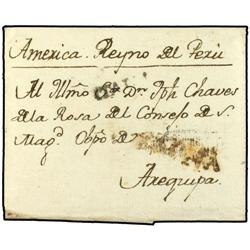 America. Reyno del Perù
Al Illmo Sr. Dn. Jph Chaves
de la Rosa del Consejo de S.
Magd. Obpo de
Arequipa.